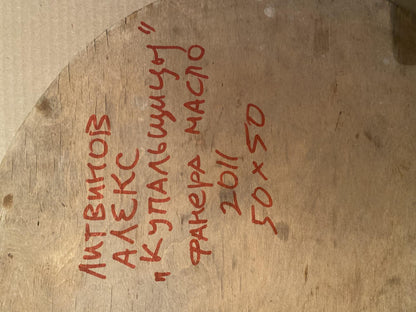 ЛИТВИНОВ
АЛЕКС
"КУПАЛЬЩИЦЫ"
ФАНЕРА МАСЛО
2011
50 x 50